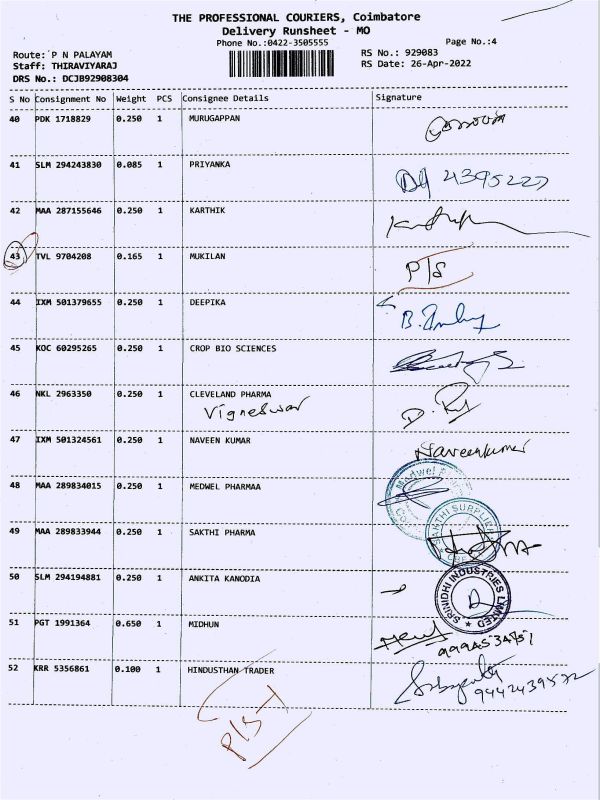 THE PROFESSIONAL COURIERS, Coimbatore
Delivery Runsheet - MO
Phone No.:0422-3505555
Page No.:4
Route: P N PALAYAM
RS No.: 929083
Staff: THIRAVIYARAJ
RS Date: 26-Apr-2022
DRS No.: DCJB92908304
S No Consignment No Weight PCS Consignee Details Signature
40 PDK 1718829 0.250 1 MURUGAPPAN
41 SLM 294243830 0.085 1 PRIYANKA
42 MAA 287155646 0.250 1 KARTHIK
43 TVL 9704208 0.165 1 MUKILAN P/S
44 IXM 501379655 0.250 1 DEEPIKA
45 KOC 60295265 0.250 1 CROP BIO SCIENCES
46 NKL 2963350 0.250 1 CLEVELAND PHARMA
Vigneswar
47 IXM 501324561 0.250 1 NAVEEN KUMAR Naveenkumar
48 MAA 289834015 0.250 1 MEDWEL PHARMAA
Medwel
49 MAA 289833944 0.250 1 SAKTHI PHARMA
SAKTHI
50 SLM 294194881 0.250 1 ANKITA KANODIA
SRINIDHI INDUSTRIES LIMITED
51 PGT 1991364 0.650 1 MIDHUN
52 KRR 5356861 0.100 1 HINDUSTHAN TRADER